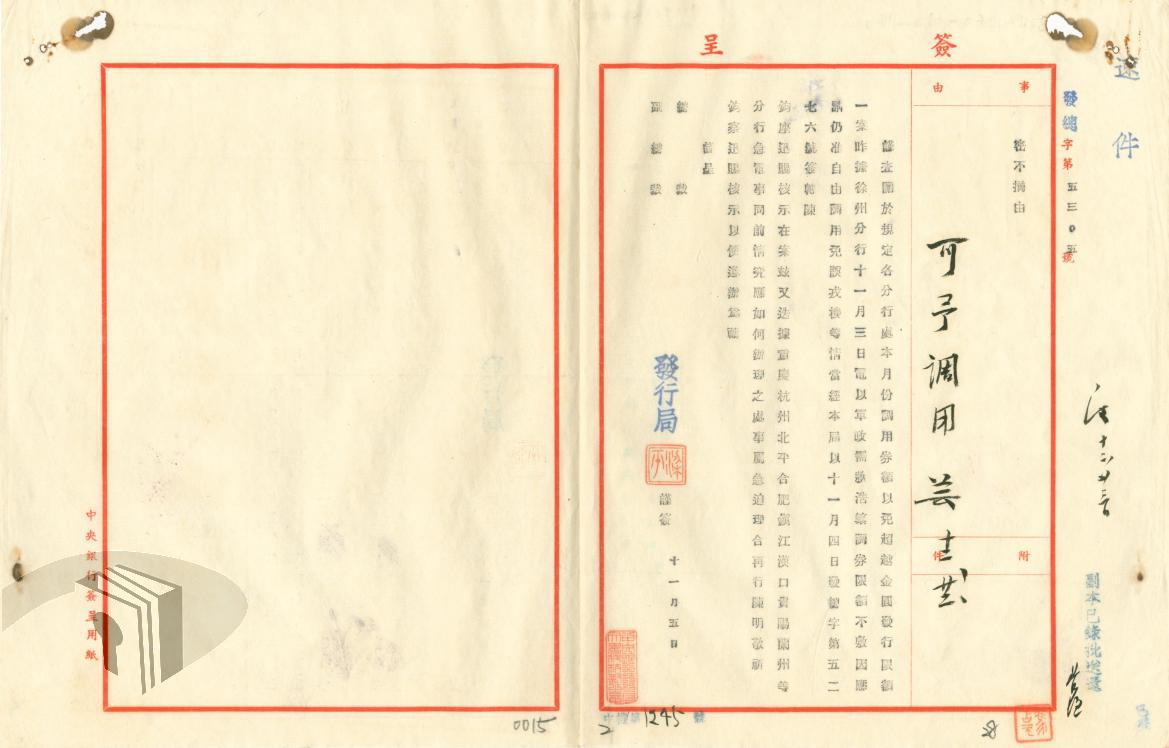 簽呈
速件
發總字第五三〇五號
副本已錄批送還
事由
密不摘由
附件
可予調用
謹查關於規定各分行處本月份調用券額以免超越金圓發行限額
一案昨據徐州分行十一月三日電以軍政需款浩繁調券限額不敷因應
仍准自由調用免誤戎機等情當經本局以十一月四日發總字第五二
七六號簽轉陳
鈞座迅賜核示在案茲又迭據重慶杭州北平合肥鎮江漢口貴陽蘭州等
分行急電事同前情究應如何辦理之處事屬急迫理合再行陳明敬祈
鈞察迅賜核示以便遵辦為禱
謹呈
總裁
副總裁
發行局
謹簽
十一月五日
中央銀行簽呈用紙
1245
0015